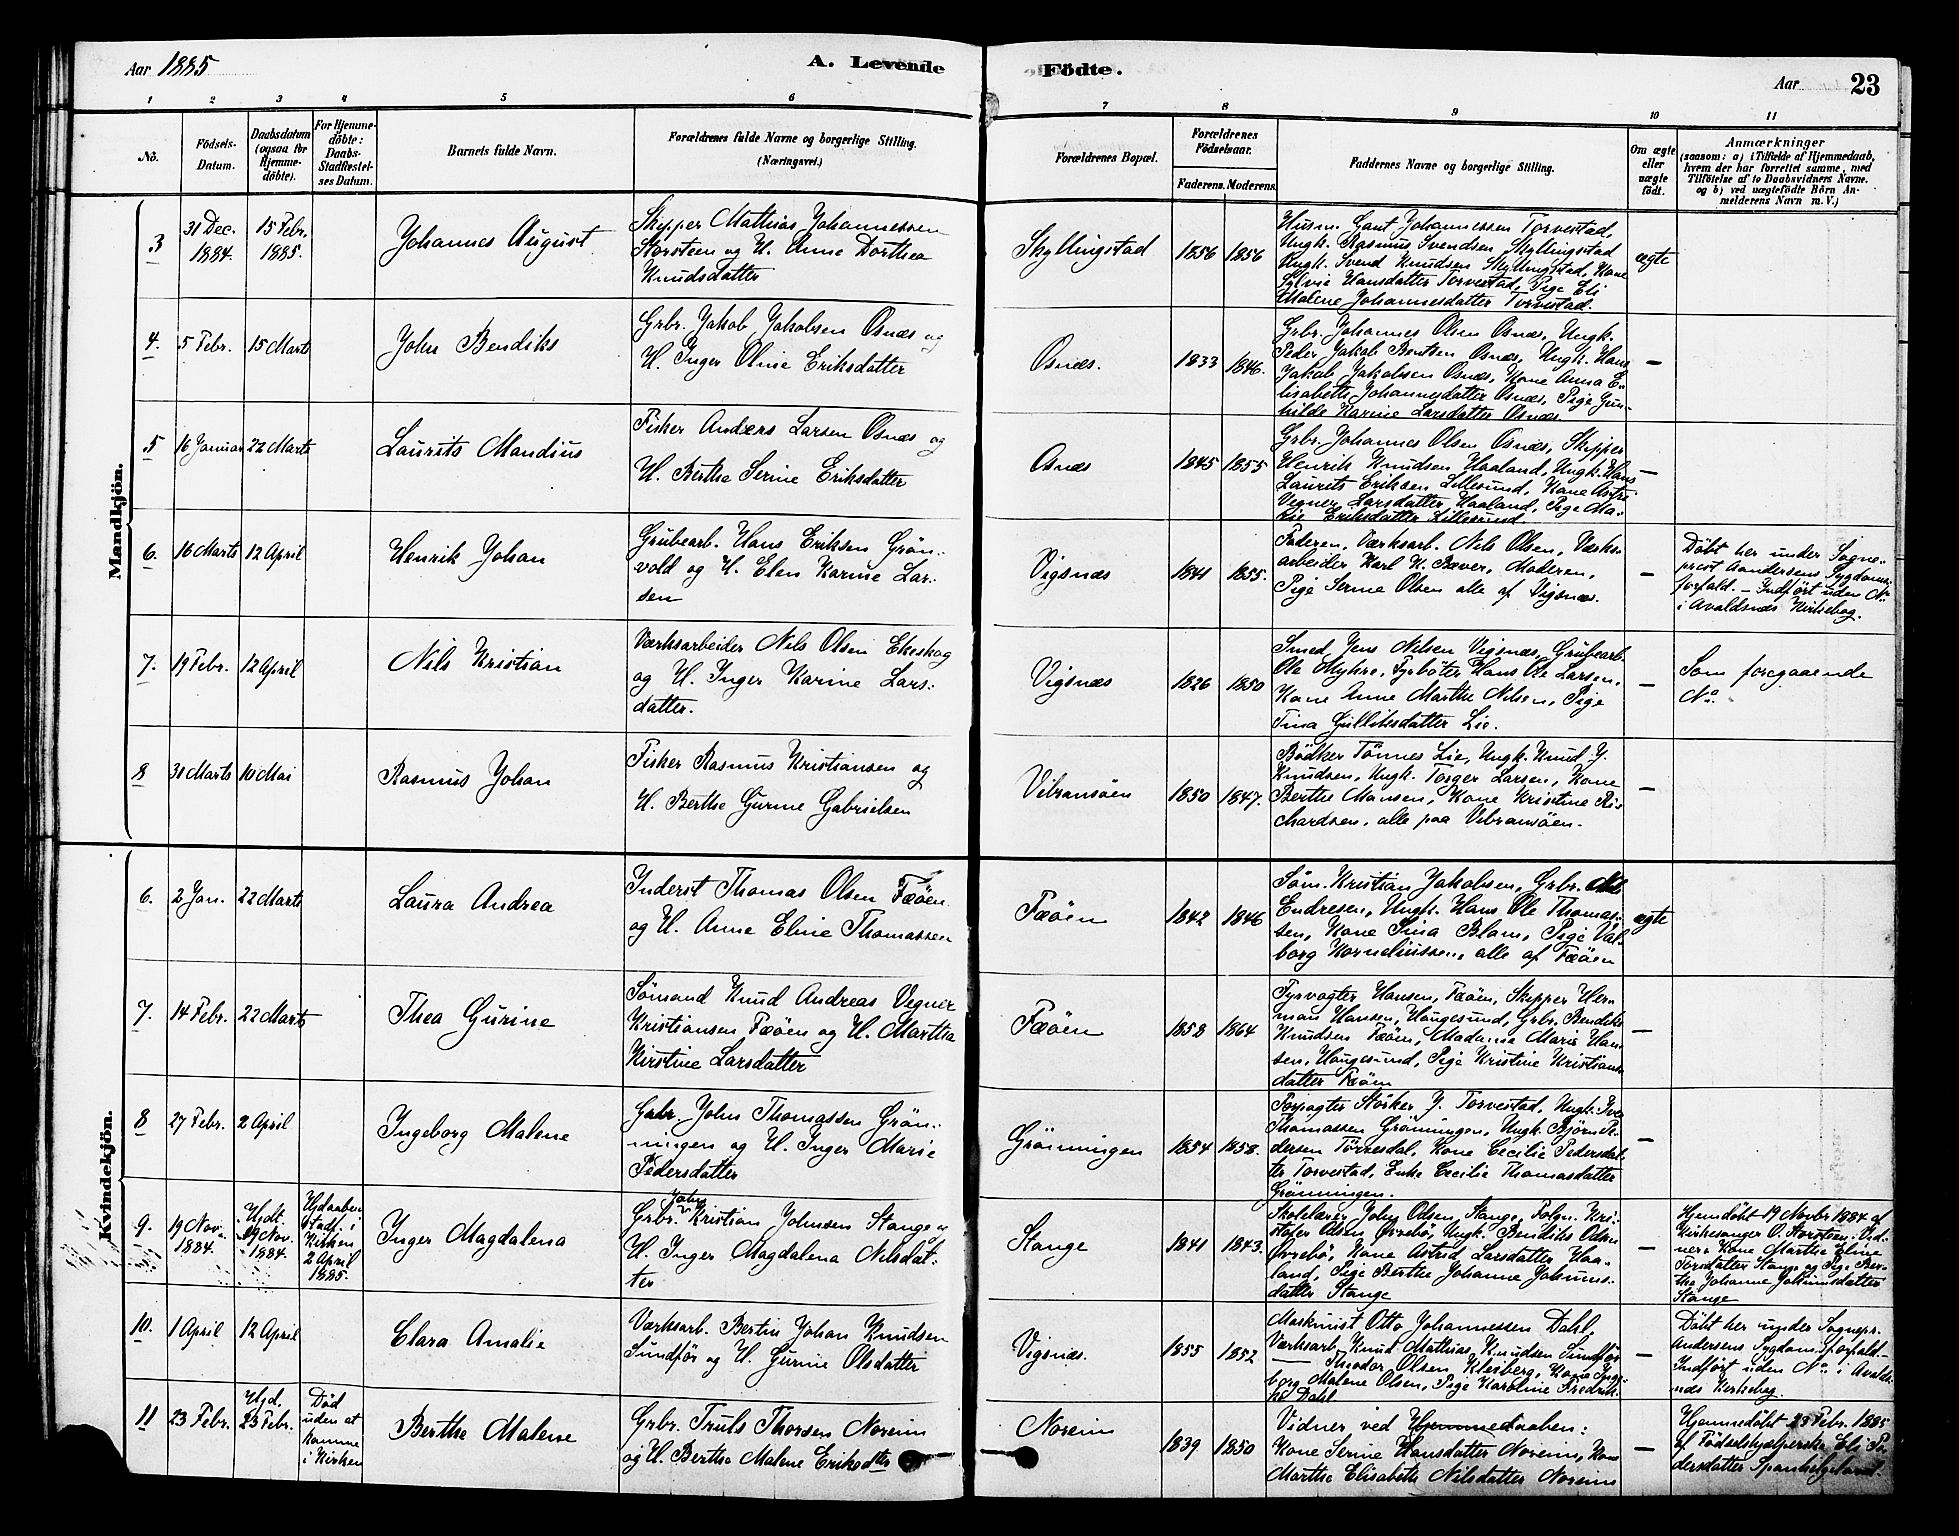 Aar 1885
A. Levende Födte.
Aar
23
1
2
3
4
5
6
7
8
9
10
11
No.
Födsels-
Datum.
Daabsdatum
(ogsaa for
Hjemme-
döbte).
For Hjemme-
döbte:
Daabs-
Stadfæstel-
ses Datum.
Barnets fulde Navn.
Forældrenes fulde Navne og borgerlige Stilling.
(Næringsvei.)
Forældrenes Bopæl.
Forældrenes
Födselsaar.
Faderens. Moderens.
Faddernes Navne og borgerlige Stilling.
Om ægte
eller
uægte
födt.
Anmærkninger
(saasom: a) i Tilfælde af Hjemmedaab,
hvem der har forrettet samme, med
Tilföielse af to Daabsvidners Navne.
og b) ved uægtefödte Börn An-
melderens Navn m. V.)
Mandkjön.
3
31 Dec.
1884.
15 Febr.
1885.
Johannes August
Skipper Mathias Johannessen
Storsteen og H. Anne Dorthea
Knudsdatter
Skyllingstad
1856
1856
Husm. Gaut Johannessen Torvestad,
Ungk. Rasmus Svendsen Skyllingstad
Ungk. Svend Knudsen Skyllingstad, Kone
Sylvie Hansdatter Torvestad, Pige Eli
Malene Johannesdatter Torvestad.
ægte
4.
5 Febr.
15 Marts
John Bendiks
Grbr. Jakob Jakobsen Osnæs og
H. Inger Oline Eriksdatter
Osnæs.
1833
1846.
Grbr. Johannes Olsen Osnæs, Ungk.
Peder Jakob Bentsen Osnæs, Ungk. Hans
Jakob Jakobsen Osnæs, Kone Anna E-
lisabeth Johannesdatter Osnæs, Pige Gun-
hilde Karine Larsdatter Osnæs
—
5
16 Januar
22 Marts
Laurits Mandius
Fisker Anders Larsen Osnæs og
H. Berthe Serine Eriksdatter
Osnæs
1845
1855
Grbr. Johannes Olsen Osnæs, Skipper
Henrik Knudsen Haaland, Ungk. Hans
Laurits Eriksen Lillesund, Kone
Larsdatter Haaland, Pige Ma-
Eriksdatter Lillesund
—
6.
16 Marts
12 April
Henrik Johan
Grubearb. Hans Eriksen Grön-
vold og H. Elen Karine Lar-
sen
Vigsnæs
1841
1855.
Faderen, Værksarb. Nils Olsen, Værks-
arbeider Karl K. Bæver, Moderen,
Pige Serine Olsen alle af Vigsnæs.
—
Döbt her under Sogne-
prest Aandersens Sygdoms-
forfald. – Indfört uden No
i Avaldsnæs Kirkebog.
7.
19 Febr.
12 April
Nils Kristian
Værksarbeider Nils Olsen Ekeskog
og H. Inger Karine Lars-
datter.
Vigsnæs
1826
1850
Smed Jens Nilsen Vigsnæs, Grubearb.
Ole Myhre, Fyrböter Hans Ole Larsen,
Kone Anne Marthe Nilsen, Pige
Tina Lie.
—
Som foregaaende
No.
8
31 Marts
10 Mai
Rasmus Johan
Fisker Rasmus Kristiansen og
H. Berthe Gurine Gabrielsen
Vibransöen
1850
1847.
Bödker Tönnes Lie, Ungk. Knud J.
Knudsen, Ungk. Torger Larsen, Kone
Berthe Mansen, Kone Kristine Ri-
chardsen, alle paa Vibransöen.
—
Kvindekjön.
6.
2 Jan.
22 Marts
Laura Andrea
Inderst Thomas Olsen Fæöen
og H. Anne Eline Thomassen
Fæöen
1842
1846
Söm. Kristian Jakobsen, Grbr.
Endresen, Ungk. Hans Ole Thomas-
sen, Kone Tina Blam, Pige Val-
borg Korneliussen, alle af Fæöen
ægte
7.
14 Febr.
22 Marts
Thea Gurine
Sömand Knud Andreas Vegner
Kristiansen Fæöen og H. Martha
Kirstine Larsdatter
Fæöen
1858
1864
Fyrvogter Hansen, Fæöen, Skipper Her-
man Hansen, Haugesund, Grbr. Bendiks
Knudsen Fæöen, Madame Marie Han-
sen, Haugesund, Pige Kristine Kristians-
datter Fæöen
—
8
27 Febr.
2 April
Ingeborg Malene
Grbr. John Thomassen Grön-
ningen og H. Inger Marie
Pedersdatter
Grönningen
1854
1858.
Forpagter Störker J. Torvestad, Ungk. Iver
Thomassen Grönningen, Ungk. Björn Pe-
dersen Torvesdal, Kone Cecilie Pedersdat-
ter Torvestad, Enke Cecilie Thomasdatter
Grönningen.
—
9.
19 Nov.
1884.
Hjdt.
19 Nov.
1884.
Hjdaaben
stadf. i
Kirken
2 April
1885.
Inger Magdalena
John
Grbr. Kristian Johnsen Stange og
H. Inger Magdalena Nilsdat-
ter
Stange
1841
1843.
Skolelærer John Olsen, Stange, Folgm. Kri-
stofer Olsen Övrebö, Ungk. Bendiks Olsen
Övrebö, Kone Astrid Larsdatter Haa-
land, Pige Berthe Johanne Jokums-
datter Stange
—
Hjemdöbt 19 Novbr 1884 af
Kirkesanger O. Storsteen. Vid-
ner: Kone Marthe Eline
Torsdatter Stange og Pige Ber-
the Johanne Jokumsdatter
Stange
10.
1 April
12 April
Clara Amalie
Værksarb. Bertin Johan Knudsen
Sundför og H. Gurine Olsdatter
Vigsnæs.
1855
1852
Maskinist Otto Johannessen Dahl,
Værksarb. Knud Mathias Knudsen Sundför
— Theodor Olsen, Kleiberg, Kone Inge-
borg Malene Olsen, Pige Karoline Fredrik-
ke Dahl.
—
Döbt her under Sognepr.
Andersens Sygdomsforfald.
Indfört uden No i Avalds-
næs Kirkebog.
11
23 Febr.
Hjd.
23 Febr.
Död
uden at
komme
i Kirken
Berthe Malene
Grbr. Truls Thorsen Noreim
og H. Berthe Malene Eriksdtr
Noreim
1839
1850
Vidner ved Hjemmedaaben:
Kone Serine Hansdatter Noreim, Kone
Marthe Elisabeth Nilsdatter Noreim
—
Hjemmedöbt 23 Febr. 1885
af Födselshjælperske Eli Pe-
dersdatter Spanhelgeland.